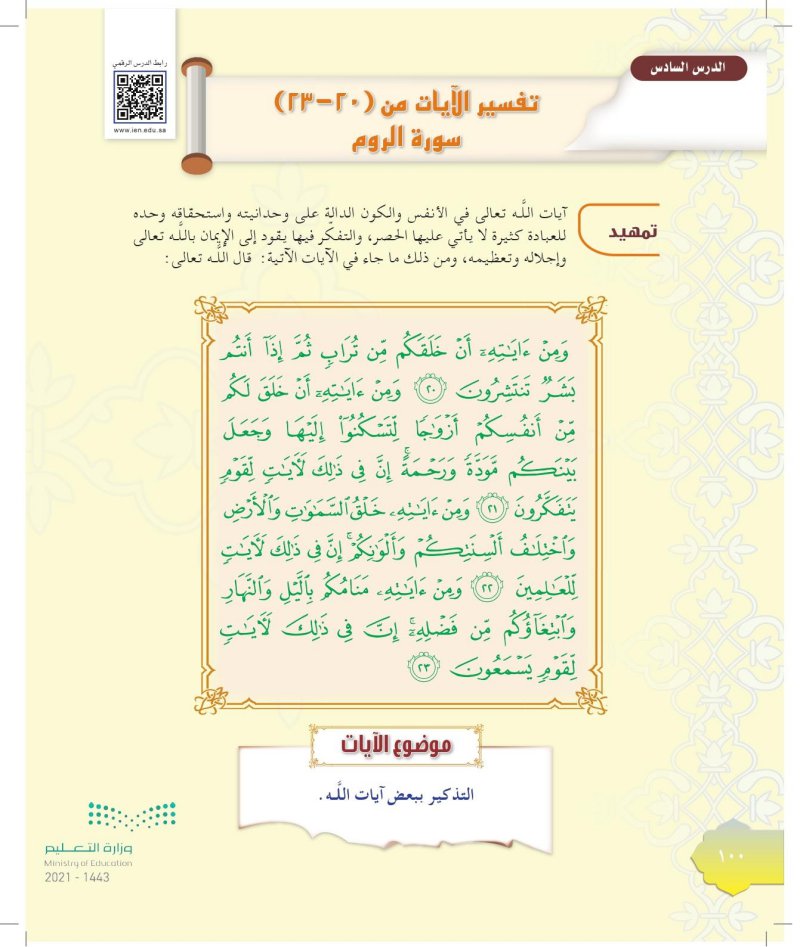 الدرس السادس
رابط الدرس الرقمي
www.ien.edu.sa
تفسير الآيات من (٢٠-٢٣)
سورة الروم
تمهيد
آيات اللَّه تعالى في الأنفس والكون الدالة على وحدانيته واستحقاقه وحده
للعبادة كثيرة لا يأتي عليها الحصر، والتفكّر فيها يقود إلى الإيمان باللَّه تعالى
وإجلاله وتعظيمه، ومن ذلك ما جاء في الآيات الآتية: قال اللَّه تعالى:
وَمِنْ ءَايَـٰتِهِۦٓ أَنْ خَلَقَكُم مِّن تُرَابٍ ثُمَّ إِذَآ أَنتُم
بَشَرٌ تَنتَشِرُونَ ٢٠ وَمِنْ ءَايَـٰتِهِۦٓ أَنْ خَلَقَ لَكُم
مِّنْ أَنفُسِكُمْ أَزْوَٰجًا لِّتَسْكُنُوٓا۟ إِلَيْهَا وَجَعَلَ
بَيْنَكُم مَّوَدَّةً وَرَحْمَةً ۚ إِنَّ فِى ذَٰلِكَ لَـَٔايَـٰتٍ لِّقَوْمٍ
يَتَفَكَّرُونَ ٢١ وَمِنْ ءَايَـٰتِهِۦ خَلْقُ ٱلسَّمَـٰوَٰتِ وَٱلْأَرْضِ
وَٱخْتِلَـٰفُ أَلْسِنَتِكُمْ وَأَلْوَٰنِكُمْ ۚ إِنَّ فِى ذَٰلِكَ لَـَٔايَـٰتٍ
لِّلْعَـٰلِمِينَ ٢٢ وَمِنْ ءَايَـٰتِهِۦ مَنَامُكُم بِٱلَّيْلِ وَٱلنَّهَارِ
وَٱبْتِغَآؤُكُم مِّن فَضْلِهِۦٓ ۚ إِنَّ فِى ذَٰلِكَ لَـَٔايَـٰتٍ
لِّقَوْمٍ يَسْمَعُونَ ٢٣
موضوع الآيات
التذكير ببعض آيات اللَّه.
وزارة التعليم
Ministry of Education
2021 - 1443
١٠٠